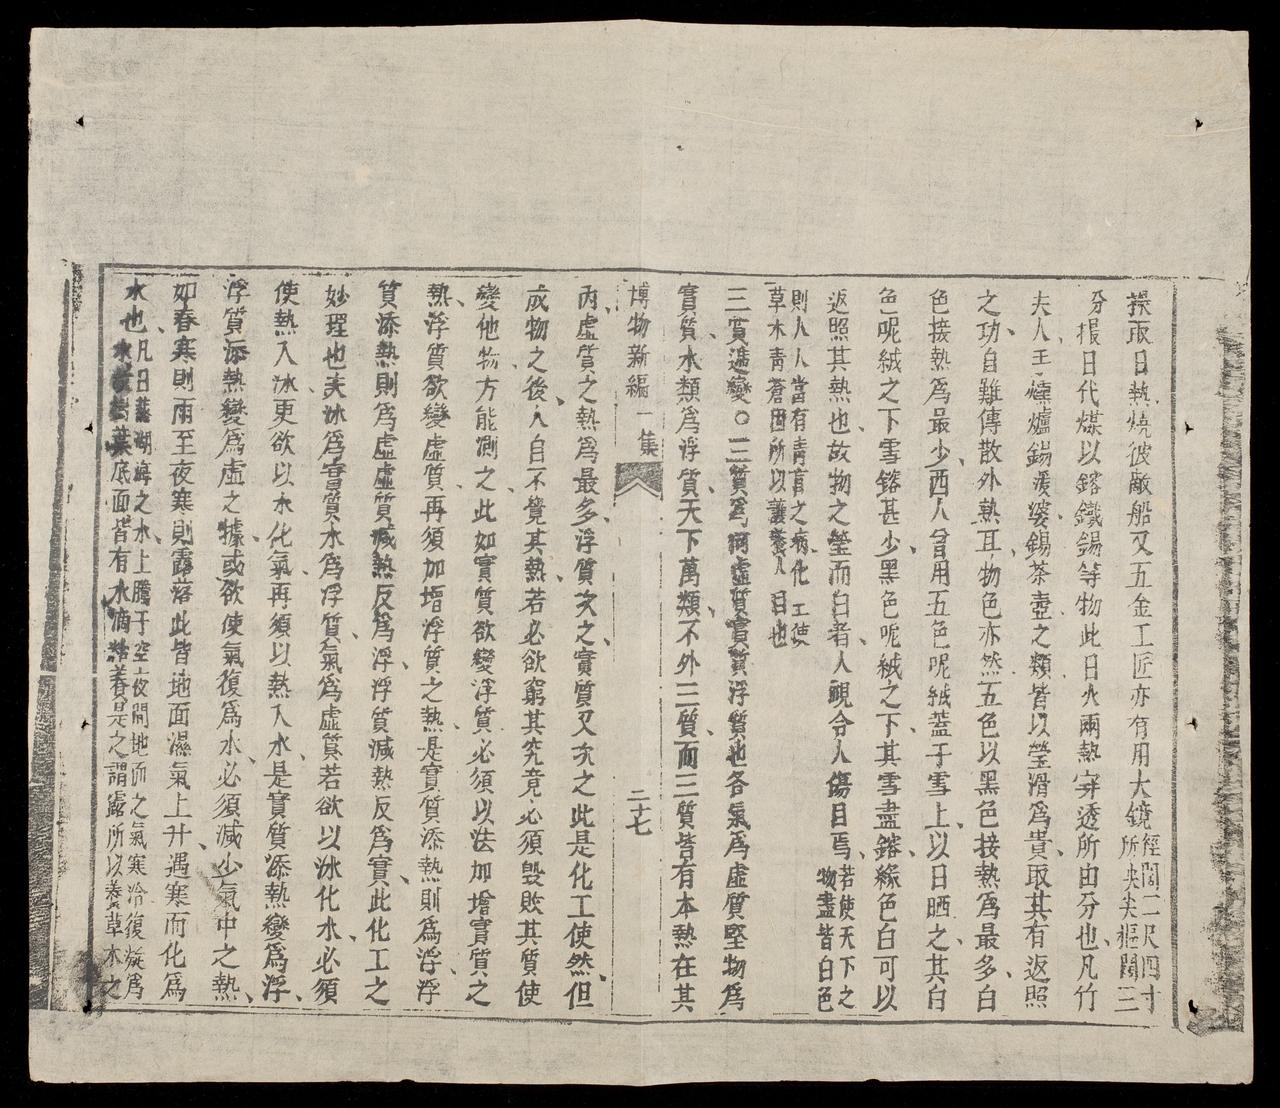 採取日熱燒彼敵船又五金工匠亦有用大鏡徑闊二尺四寸所夾尖樞闊三
分撮日代煤以鎔鐵錫等物此日火兩熱穿透所由分也、凡竹
夫人王燻爐錫湯婆錫茶壺之類皆以瑩滑爲貴、取其有返照
之功、自難傳散外熱耳、物色亦然五色以黑色接熱爲最多、白
色接熱爲最少、西人曾用五色呢絨蓋于雪上、以日晒之、其白
色呢絨之下雪鎔甚少、黑色呢絨之下、其雪盡鎔、緣色白可以
返照其熱也、故物之瑩而白者、人視令人傷目焉、若使天下之物盡皆白色
則人人當有靑盲之病、化工使
草木靑蒼四所以護養人目也
三質遞變○三質爲何虛質實質浮質也各氣爲虛質堅物爲
實質、水類爲浮質、天下萬類、不外三質、而三質皆有本熱在其
博物新編 一集 二十七
內、虛質之熱爲最多、浮質次之、實質又次之此是化工使然、但
成物之後、人自不覺其熱、若必欲窮其究竟、必須毁敗其質使
變他物、方能測之、此如實質欲變浮質、必須以法加增實質之
熱、浮質欲變虛質、再須加增浮質之熱、是實質添熱則爲浮、浮
質添熱則爲虛、虛質減熱、反爲浮、浮質減熱反爲實、此化工之
妙理也、夫冰爲實質、水爲浮質、氣爲虛質、若欲以冰化水、必須
使熱入冰、更欲以水化氣、再須以熱入水、是實質添熱變爲浮、
浮質添熱變爲虛之據、或欲使氣復爲水、必須減少氣中之熱、
如春寒則雨至、夜寒則露落、此皆地面濕氣上升、遇寒而化爲
水也、凡日蒸湖海之水上騰于空、夜間地面之氣寒冷復凝爲水、黃樹葉底面皆有水滴、是之謂露、所以養草木之